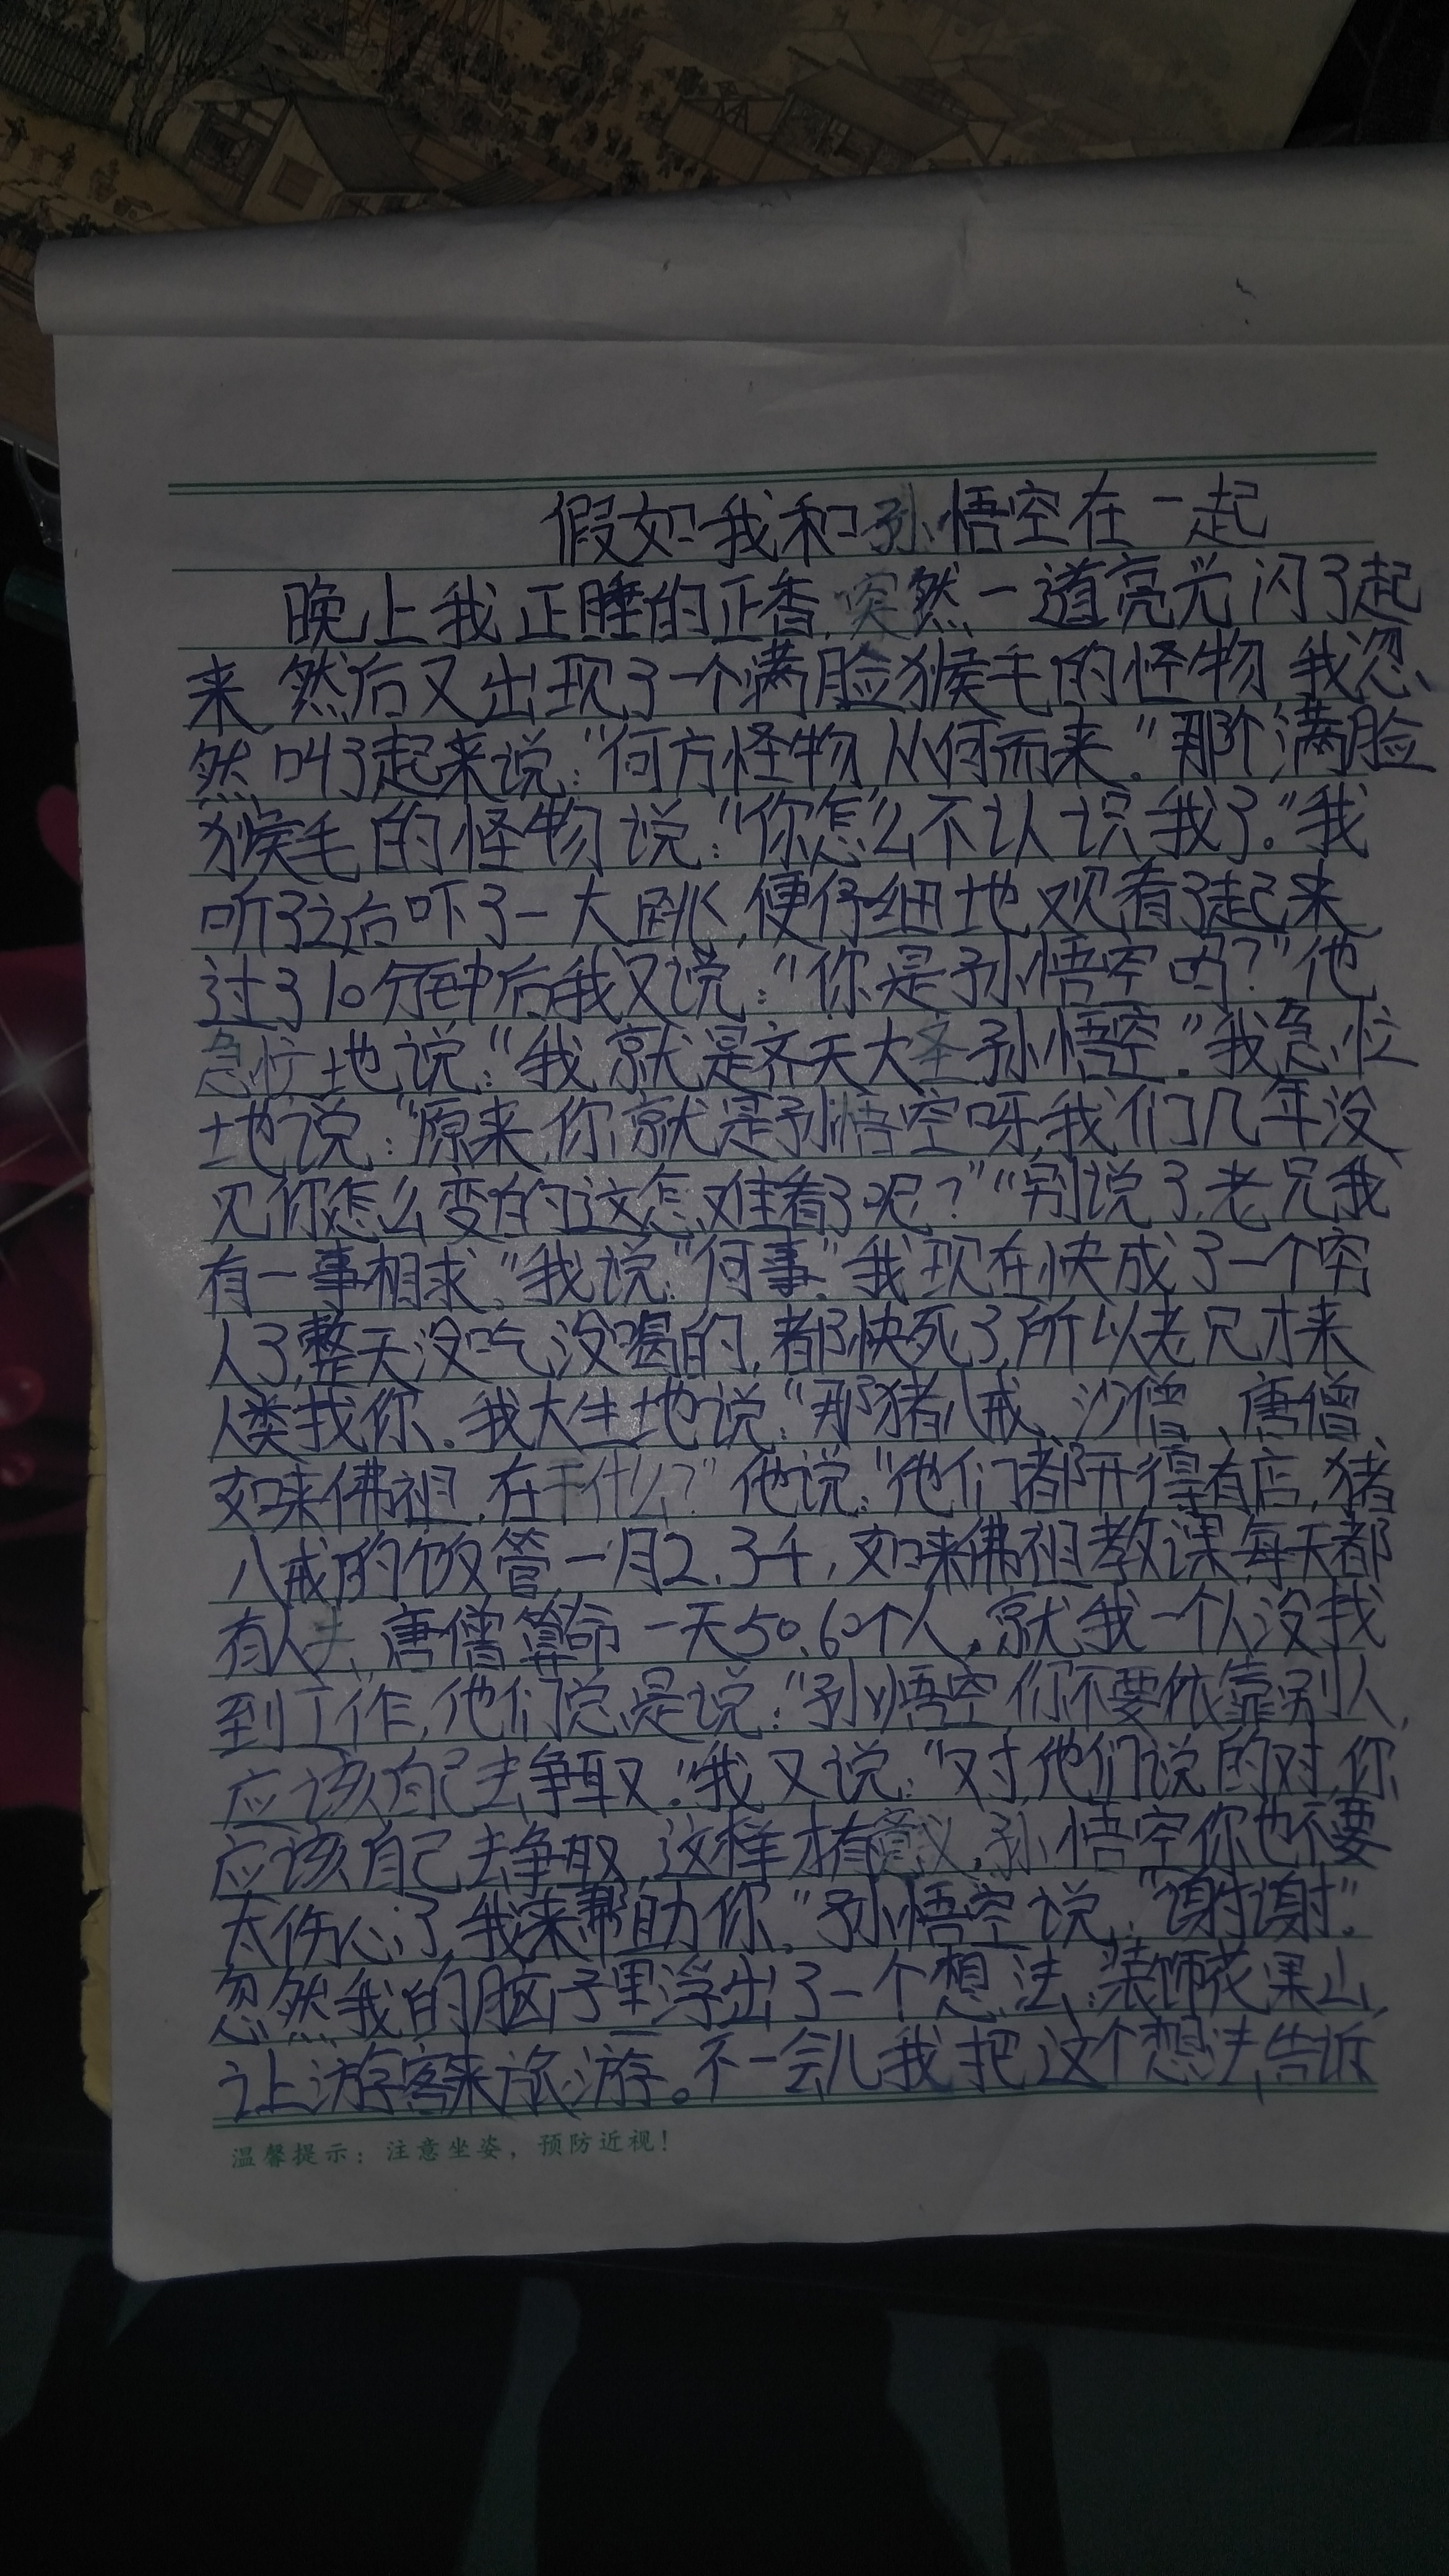 假如我和孙悟空在一起
晚上我正睡的正香,突然一道亮光闪了起
来,然后又出现了一个满脸猴毛的怪物,我忽
然叫了起来说:“何方怪物,从何而来。”那个满脸
猴毛的怪物说:“你怎么不认识我了。”我
听了之后吓了一大跳,便仔细地观看了起来,
过了10分钟后我又说:“你是孙悟空吗?”他
急忙地说:“我就是齐天大圣孙悟空。”我急忙
地说:“原来,你就是孙悟空呀,我们几年没
见,你怎么变的这怎难看了呢?”“别说了,老兄我
有一事相求。”我说:“何事。”我现在快成了一个穷
人了,整天没吃,没喝的,都快死了,所以老兄才来
人类找你。我大生地说:“那猪八戒、沙僧、唐僧、
如来佛祖,在干什么?”他说:“他们都开得有店,猪
八戒的饭管,一月2.3千,如来佛祖教课,每天都
有人去,唐僧算命一天50.60个人,就我一个人没找
到工作,他们总是说:“孙悟空你不要依靠别人,
应该自己去争取。”我又说:“对,他们说的对,你
应该自己去争取,这样才有意义,孙悟空你也不要
太伤心了,我来帮助你。”孙悟空说:“谢谢”。
忽然我的脑子里浮出了一个想法:装饰花果山,
让游客来旅游。不一会儿我把这个想法告诉
温馨提示:注意坐姿,预防近视!